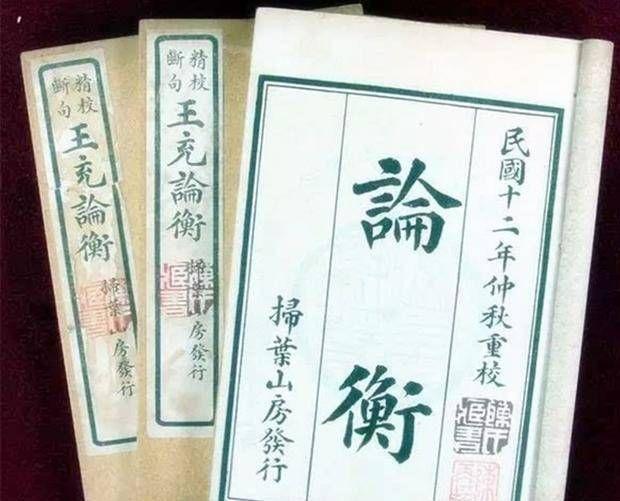 精校
斷句
王充論衡
掃葉山房發行
精校
斷句
王充論衡
掃葉山房發行
民國十二年仲秋重校
論衡
掃葉山房發行